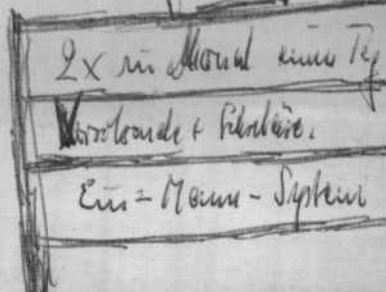 2x im Monat einen Tag
Vorsitzende + Sekretäre.
Ein=Mann-System